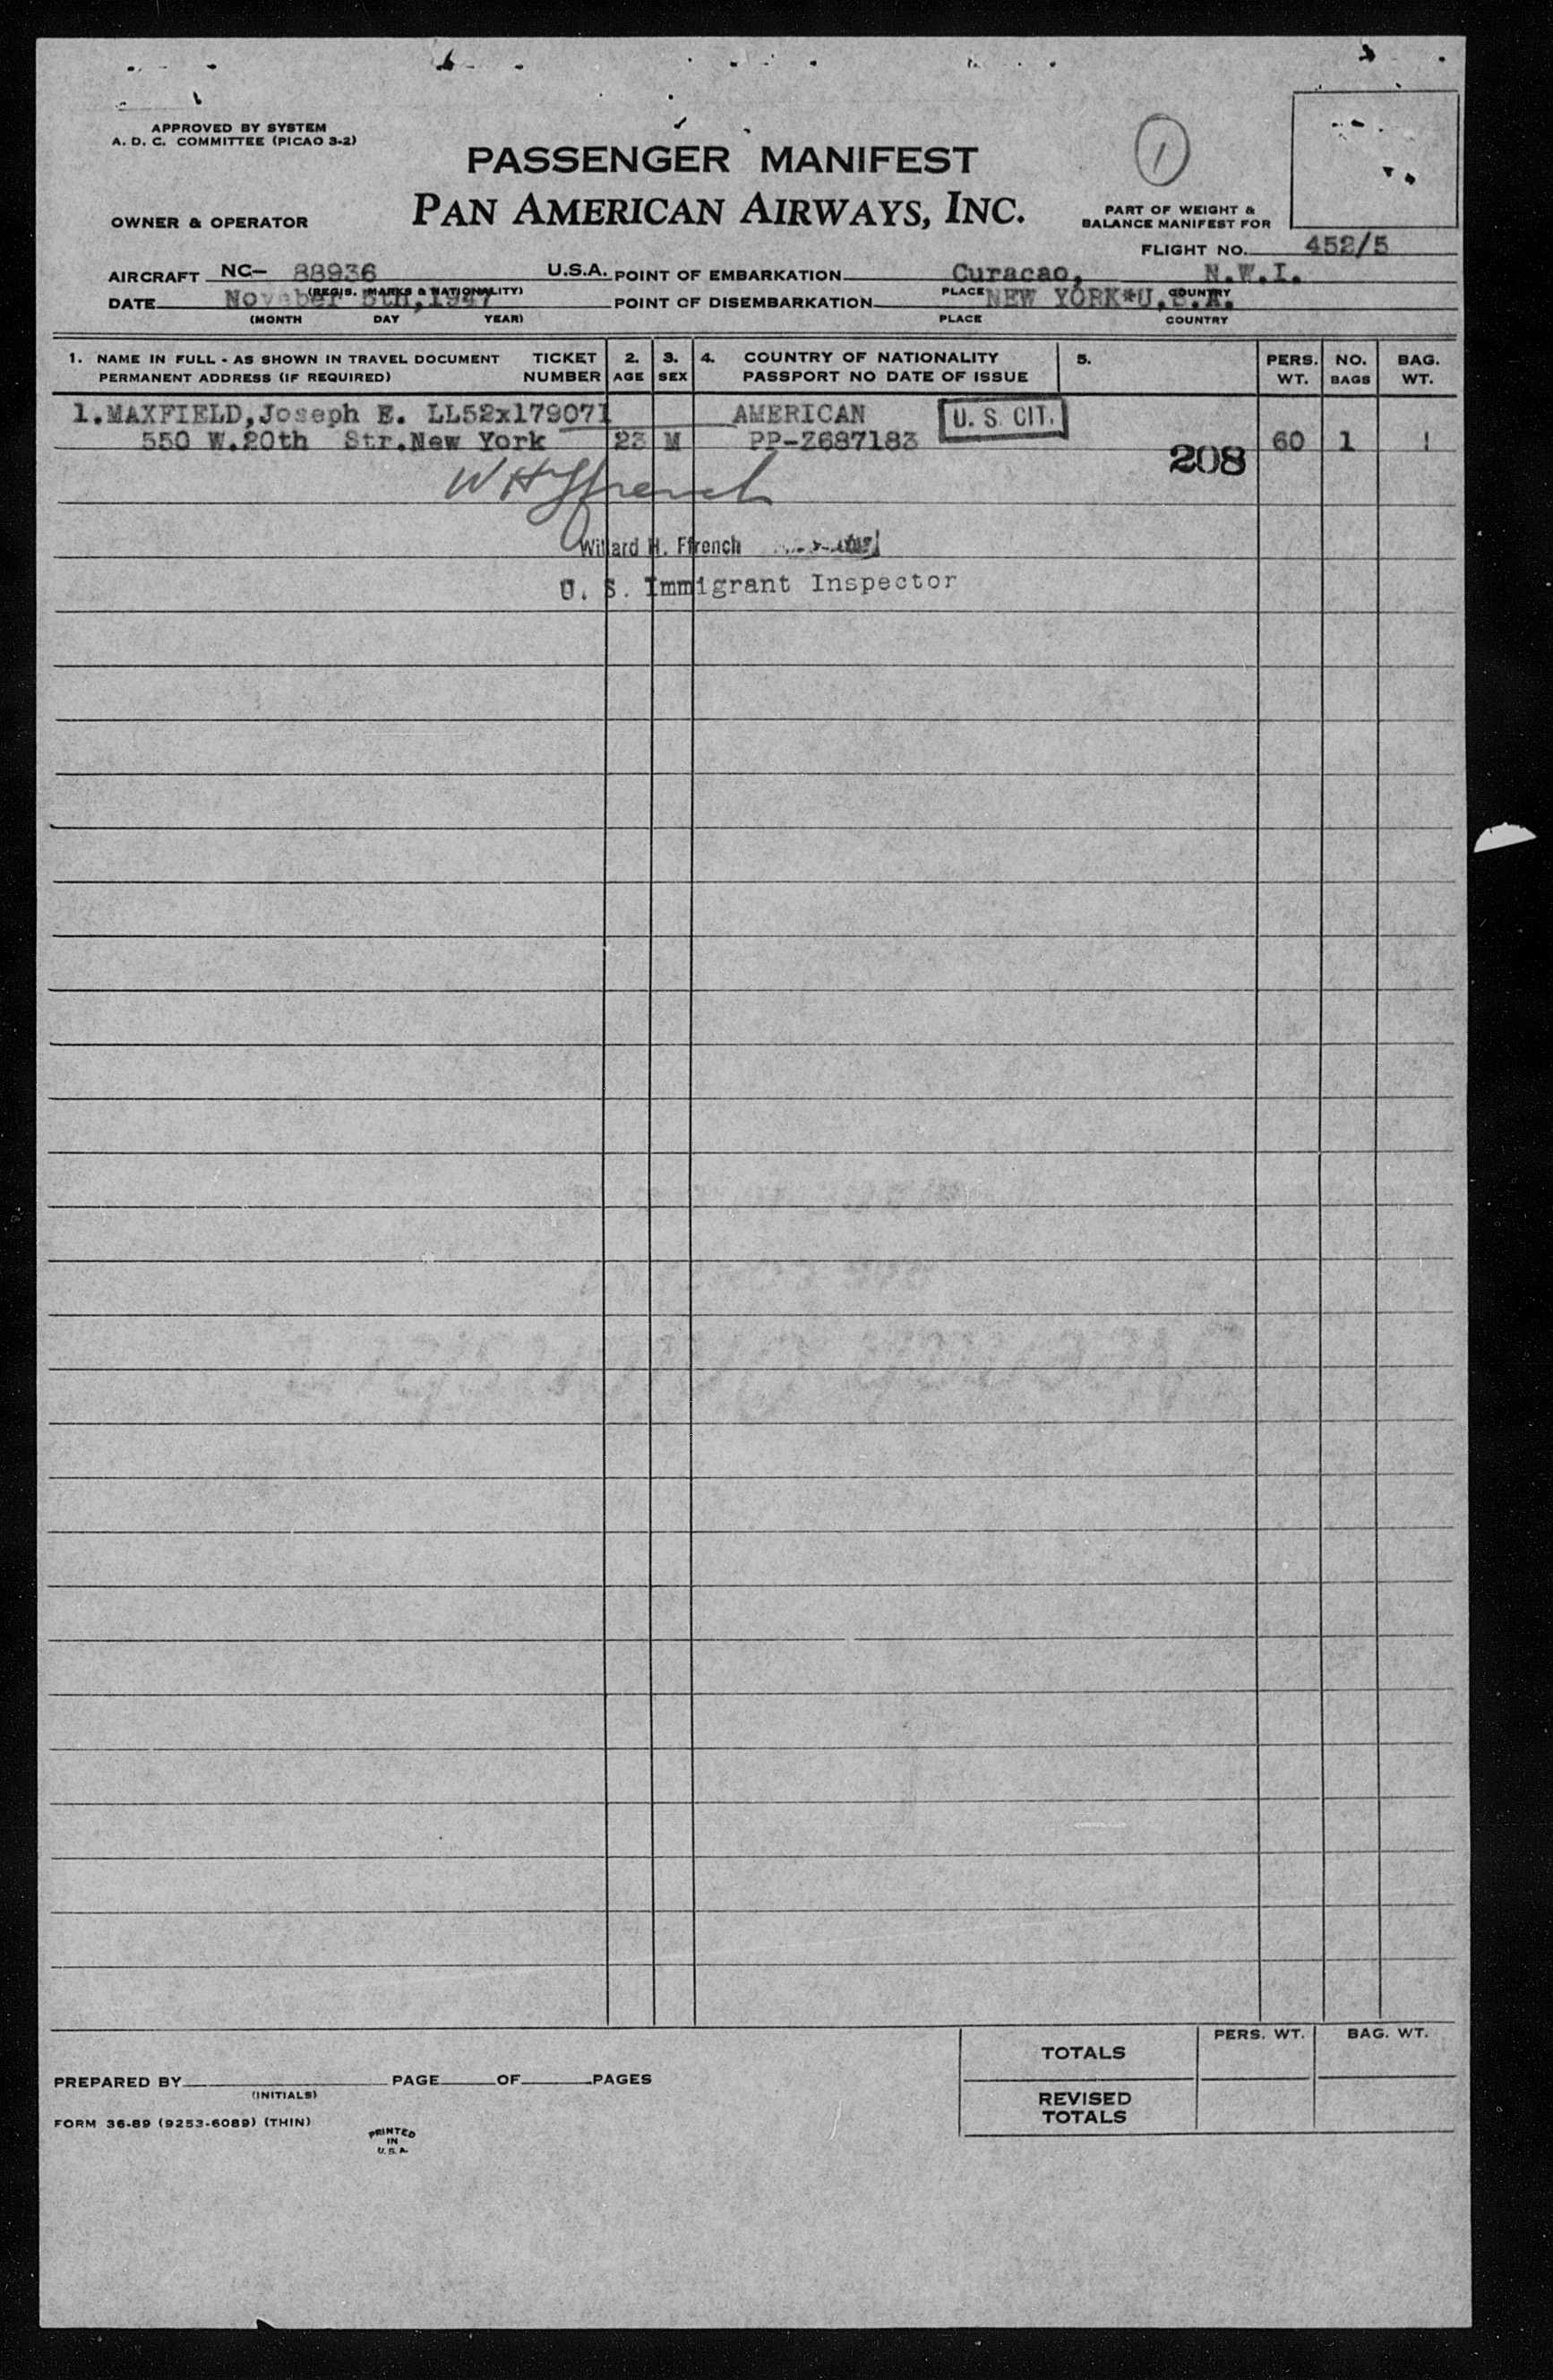 APPROVED BY SYSTEM
A. D. C. COMMITTEE (PICAO 3-2)
1
PASSENGER MANIFEST
PAN AMERICAN AIRWAYS, INC.
OWNER & OPERATOR
PART OF WEIGHT &
BALANCE MANIFEST FOR
FLIGHT NO. 452/5
AIRCRAFT NC- 88936 U.S.A. POINT OF EMBARKATION Curacao, N.W.I.
(REGIS. MARKS & NATIONALITY) PLACE COUNTRY
DATE Novenber 5th,1947 POINT OF DISEMBARKATION NEW YORK*U.S.A.
(MONTH DAY YEAR) PLACE COUNTRY
1. NAME IN FULL - AS SHOWN IN TRAVEL DOCUMENT TICKET 2. 3. 4. COUNTRY OF NATIONALITY 5. PERS. NO. BAG.
PERMANENT ADDRESS (IF REQUIRED) NUMBER AGE SEX PASSPORT NO DATE OF ISSUE WT. BAGS WT.
1.MAXFIELD,Joseph E. LL52x179071 AMERICAN U. S. CIT.
550 W.20th Str.New York 23 M PP-Z687183 208 60 1 1
WHFfrench
Willard H. Ffrench
U. S. Immigrant Inspector
TOTALS PERS. WT. BAG. WT.
PREPARED BY PAGE OF PAGES
(INITIALS)
REVISED
TOTALS
FORM 36-89 (9253-6089) (THIN)
PRINTED
IN
U.S.A.